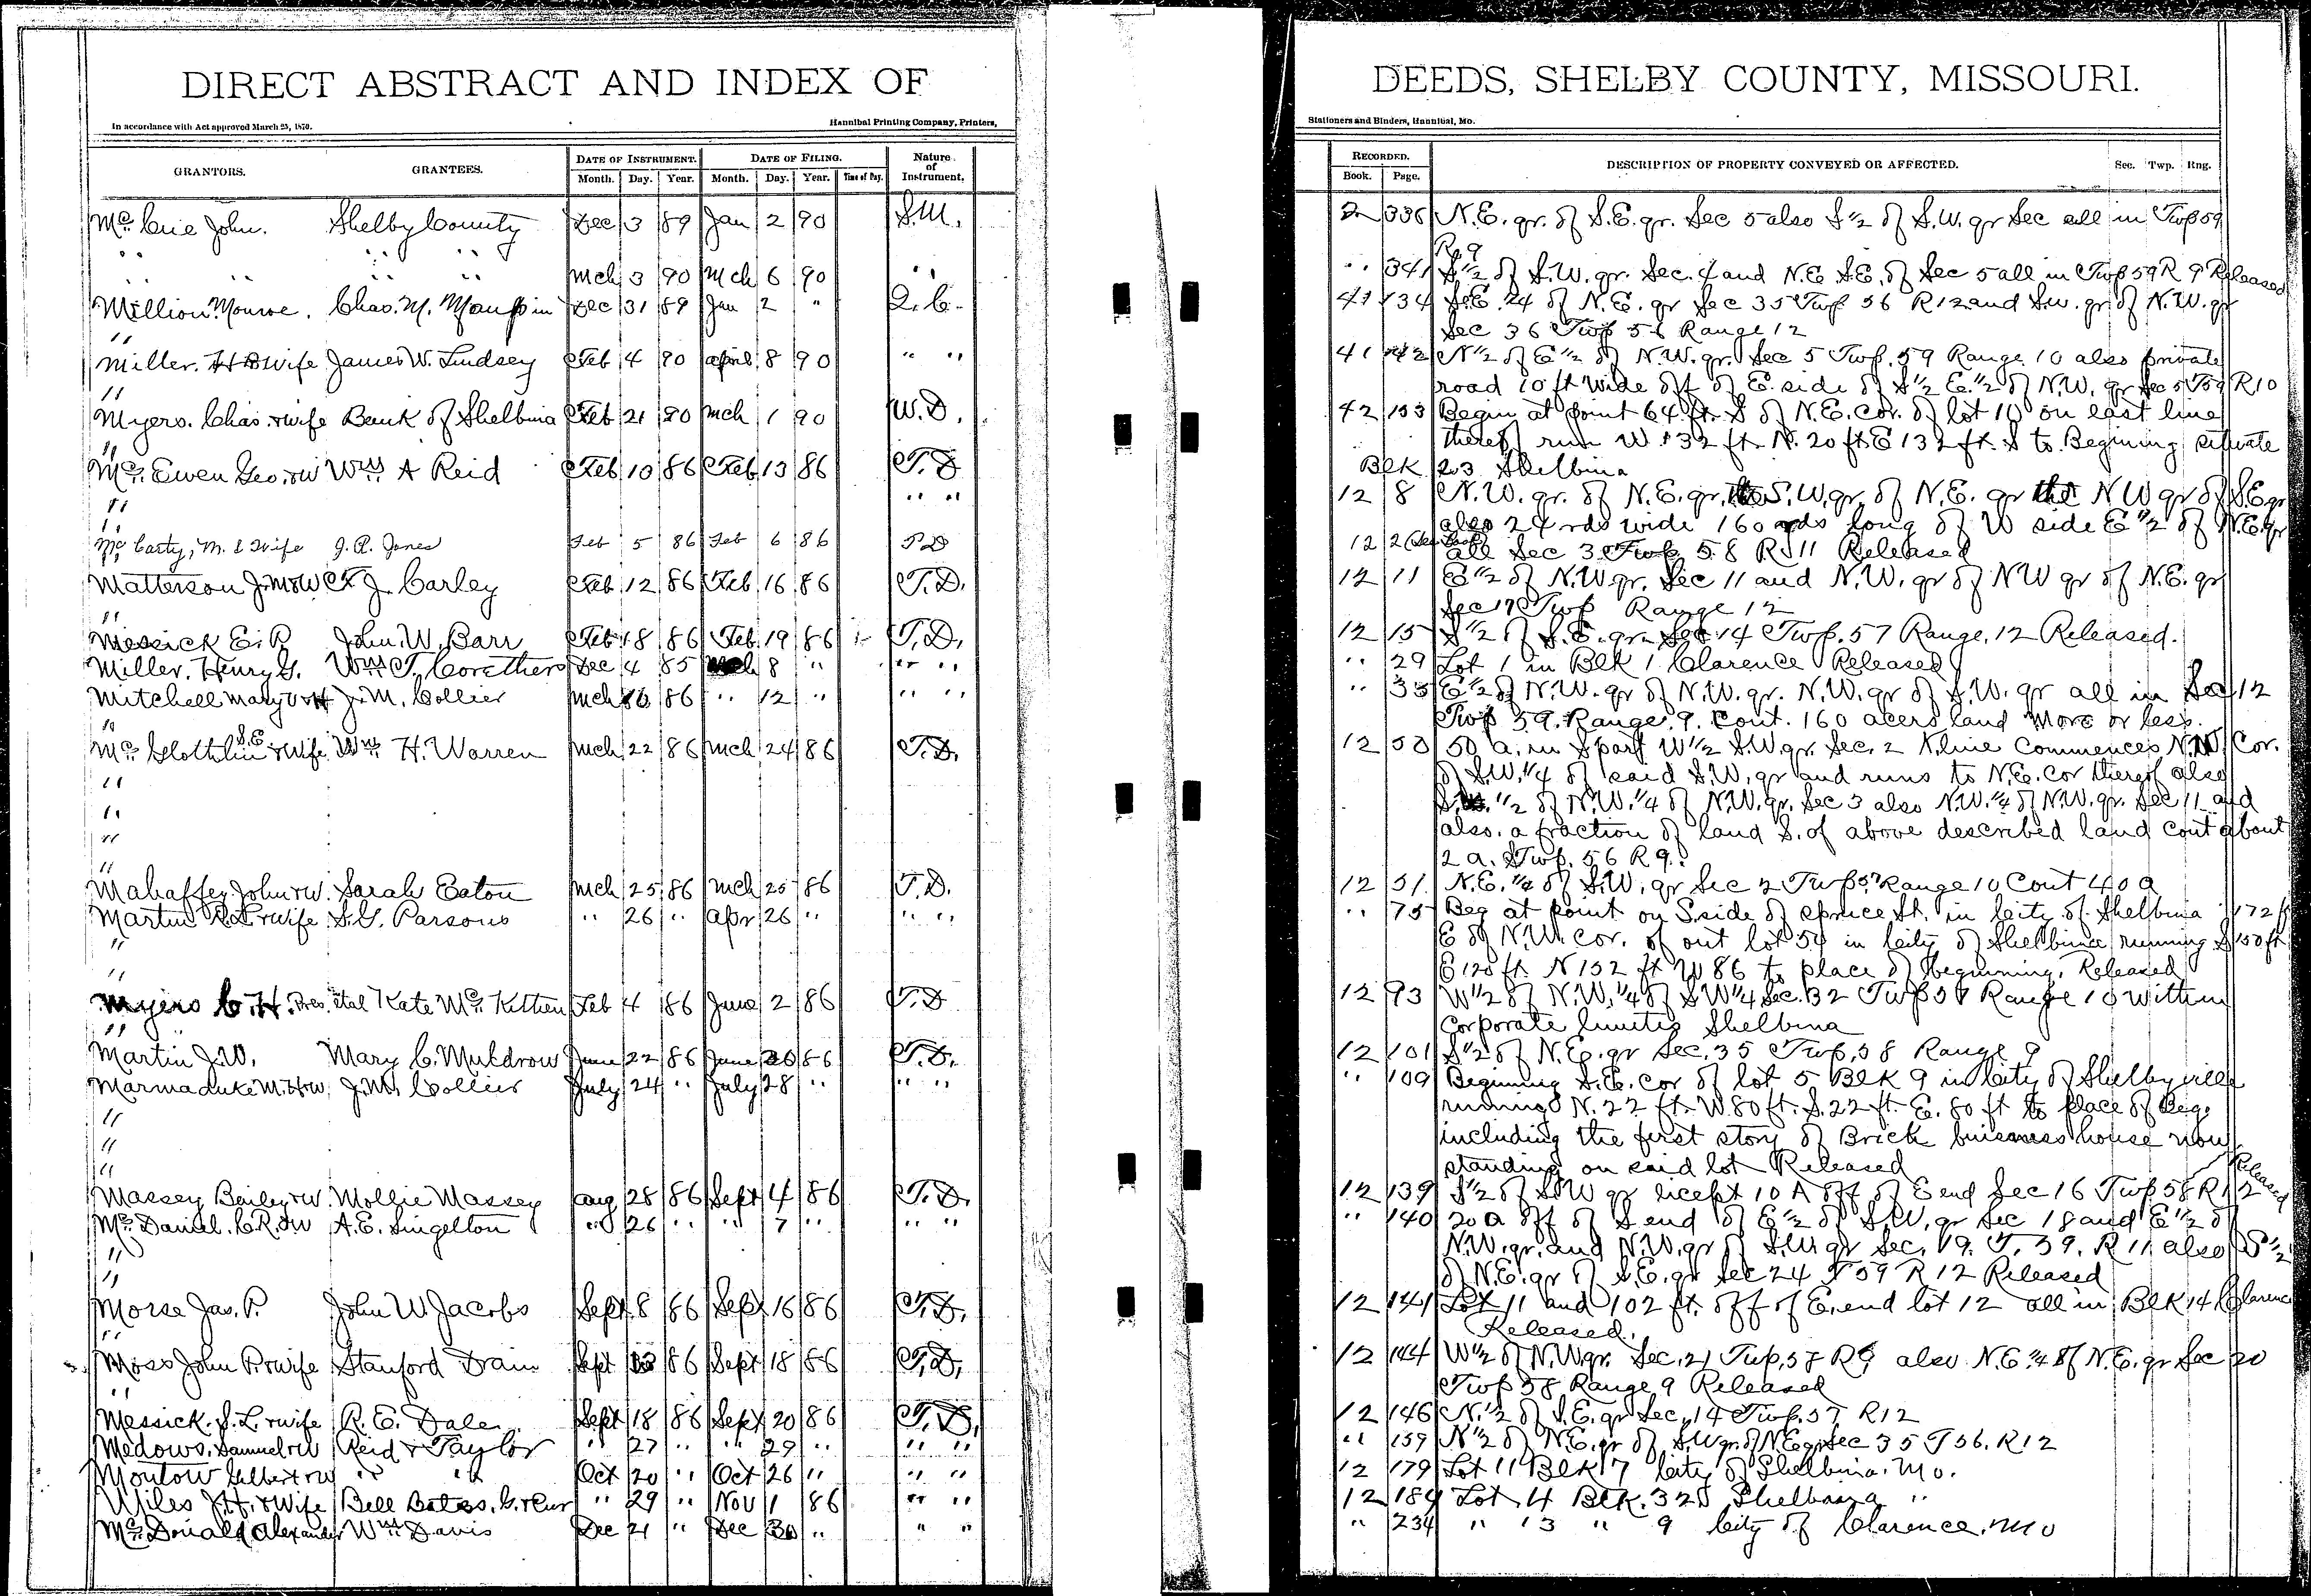 DIRECT ABSTRACT AND INDEX OF
In accordance with Act approved March 25, 1870.
Hannibal Printing Company, Printers,
GRANTORS. GRANTEES. DATE OF INSTRUMENT. DATE OF FILING. Nature of Instrument.
Month. Day. Year. Month. Day. Year. Time of Day.
Mc Crie John. Shelby County Dec 3 89 Jan 2 90 S.M.
" " " " Mch 3 90 Mch 6 90 "
Million Monroe. Chas. M. Maupin Dec 31 89 Jan 2 " Q.C.
"
Miller. H B wife James W. Lindsey Feb 4 90 april 8 90 " "
"
Myers. Chas. & wife Bank of Shelbina Feb 21 90 Mch 1 90 W.D.
"
Mc Ewen Geo. & W Wm A Reid Feb 10 86 Feb 13 86 T.D
" " "
"
Mc Carty, M. & Wife J. R. Jones Feb 5 86 Feb 6 86 T D
Matterson J. M & W T J. Carley Feb 12 86 Feb 16 86 T.D.
"
Messick E. R John. W. Barr Feb 18 86 Feb 19 86 T.D.
Miller. Henry G. Wm T. Corethers Dec 4 85 Mch 8 " " "
Mitchell Mary J.M. Collier Mch 86 " 12 " " "
"
Mc Glothlin S.E & Wife Wm H. Warren Mch 22 86 Mch 24 86 T.D.
"
"
"
"
Mahaffey John & W. Sarah Eaton Mch 25 86 Mch 25 86 T.D.
Martin R. L & wife S.G. Parsons " 26 " Apr 26 " " "
"
"
Myers C. H. Pres. etal Kate Mc Kithen Feb 4 86 June 2 86 T.D
"
Martin J.W. Mary C. Muldrow June 22 86 June 26 86 T.D.
Marmaduke M. H & W. J.M. Collier July 24 " July 28 " " "
"
"
"
Massey Bailey & W. Mollie Massey Aug 28 86 Sept 4 86 T.D.
Mc Daniel. C.R. & W A.E. Singelton " 26 " " 7 " " "
"
"
Morse Jas. P. John W. Jacobs Sept 8 86 Sept 16 86 T.D.
"
Moss John P. & wife Stanford Drain Sept 86 Sept 18 86 T.D.
"
Messick. S. L. & wife R. E. Dale Sept 18 86 Sept 20 86 T.D.
Medows. Samuel & W Reid & Taylor " 27 " " 29 " " "
Montow Gelbert & W " " Oct 20 " Oct 26 " " "
Miles J.H. & Wife Bell Bates. G. & Cur " 29 " Nov 1 86 " "
Mc Donald Alexander Wm Davis Dec 21 " Dec 30 " " "
DEEDS, SHELBY COUNTY, MISSOURI.
Stationers and Binders, Hannibal, Mo.
RECORDED. DESCRIPTION OF PROPERTY CONVEYED OR AFFECTED. Sec. Twp. Rng.
Book. Page.
2 336 N.E. qr. of S.E. qr. Sec 5 also S 1/2 of S.W. qr Sec all in Twp 59
R. 9
" 341 S 1/2 of S.W. qr. Sec. 4 and N.E S.E. of Sec 5 all in Twp 59 R 9 Released
41 134 S.E. 24 of N.E. qr Sec 35 Twp 56 R 12 and S.W. qr of N.W. qr
Sec 36 Twp 56 Range 12
41 42 N 1/2 of E 1/2 of N.W. qr. Sec 5 Twp. 59 Range. 10 also private
road 10 ft wide off of E. side of S 1/2 E. 1/2 of N.W. qr Sec 5 T 59 R10
42 133 Begin at point 64 ft. S of N.E. cor. of lot 10 on east line
thereof run W 132 ft. N. 20 ft. E 132 ft. S to Begining situate
Blk 23 Shelbina
12 8 N.W. qr. of N.E. qr. the S.W. qr. of N.E. qr the N W qr of S.E qr
also 24 rds wide 160 rds long of W side E 1/2 of N.E. qr
12 2 all Sec 3 Twp 58 R 11 Released
12 11 E 1/2 of N.W qr. Sec 11 and N.W. qr of N W qr of N.E. qr
Sec 17 Twp Range 12
12 15 S 1/2 of S.E. qr. Sec 14 Twp. 57 Range. 12 Released.
" 29 Lot 1 in Blk 1 Clarence Released
" 33 E 1/2 of N.W. qr of N.W. qr. N.W. qr of S.W. qr all in Sec 12
Twp 59. Range. 9. Cont. 160 acers land more or less.
12 50 50 a. in S part W 1/2 S.W. qr. Sec. 2 N. line Commences N.W. Cor.
of S.W. 1/4 of said S.W. qr and runs to N.E. cor thereof also
1/2 of N.W. 1/4 of N.W. qr. Sec 3 also N.W. 1/4 of N.W. qr. Sec 11 and
also. a fraction of land S. of above described land cont about
2 a. Twp. 56 R 9.
12 51 N.E. 1/4 of S.W. qr Sec 2 Twp 57 Range 10 Cont 40 a
" 75 Beg at point on S side of Spruce St. in City of Shelbina 172 ft
E of N.W. Cor. of out lot 54 in City of Shelbina running S 150 ft
E 120 ft. N 152 ft W 86 to place of Beginning. Released
12 93 W 1/2 of N.W. 1/4 of S W 1/4 Sec. 32 Twp 57 Range 10 within
Corporate limits Shelbina
12 101 S 1/2 of N.E. qr Sec. 35 Twp. 58 Range 9
" 109 Beginning S.E. cor of lot 5 Blk 9 in City of Shelbyville
running N. 22 ft. W. 80 ft. S. 22 ft. E. 80 ft to place of Beg.
including the first story of Brick buisness house now
standing on said lot Released
12 139 S 1/2 of S W qr excpt 10 A off of E end Sec 16 Twp 58 R 12 Released
" 140 20 a off of S end of E 1/2 of S.W. qr Sec 18 and E 1/2 of
N.W. qr. and N.W. qr of S.W. qr Sec. 19. T. 59. R 11 also S 1/2
of N.E. qr of S.E. qr Sec 24 T 59 R 12 Released
12 141 Lot 11 and 102 ft. off of E. end lot 12 all in Blk 14 Clarence
Released.
12 144 W 1/2 of N.W qr. Sec. 21 Twp. 58 R 9 also N.E. 1/4 of N.E. qr Sec 20
Twp 58 Range 9 Released
12 146 N. 1/2 of S.E. qr Sec. 14 Twp. 57 R12
" 159 N 1/2 of N.E. qr of S.W qr. of N.E qr Sec 35 T 56. R 12
12 179 Lot 11 Blk 7 City of Shelbina. Mo.
12 184 Lot 4 Blk. 32 Shelbina "
" 234 " 3 " 9 City of Clarence. Mo